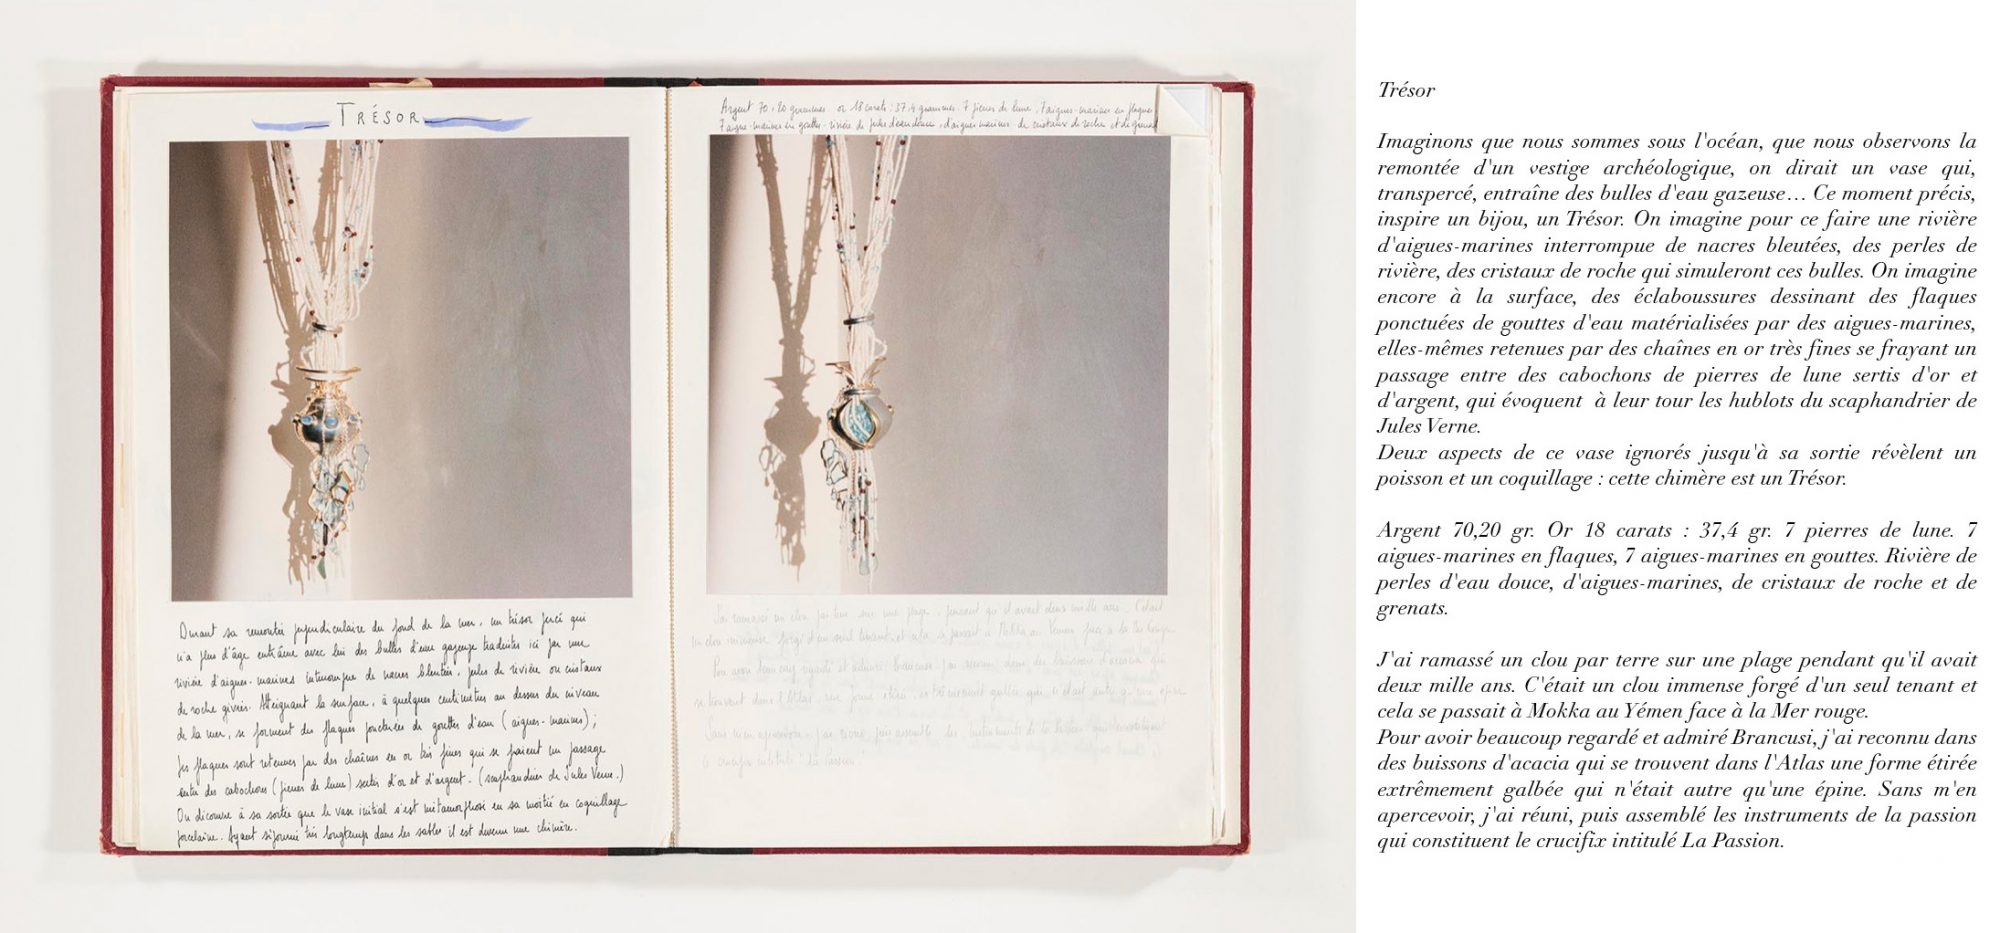 TRÉSOR
Durant sa remontée perpendiculaire du fond de la mer, un trésor percé qui
n'a plus d'âge entraîne avec lui des bulles d'eau gazeuse traduites ici par une
rivière d'aigues-marines interrompue de nacres bleutées, perles de rivière ou cristaux
de roche givrés. Atteignant la surface, à quelques centimètres au dessus du niveau
de la mer, se forment des flaques ponctuées de gouttes d'eau (aigues-marines);
les flaques sont retenues par des chaînes en or très fines qui se fraient un passage
entre des cabochons (pierres de lune) sertis d'or et d'argent. (scaphandrier de Jules Verne.)
On découvre à sa sortie que le vase initial s'est métamorphosé en sa moitié en coquillage
porcelaine. Ayant séjourné très longtemps dans les sables il est devenu une chimère.
Argent 70,20 grammes or 18 carats : 37,4 grammes. 7 pierres de lune. 7 aigues-marines en flaques
7 aigue-marines en gouttes. rivière de perles d'eau douce, d'aigues marines, de cristaux de roche et de grenat
J'ai ramassé un clou par terre sur une plage, pendant qu'il avait deux mille ans. C'était
un clou immense forgé d'un seul tenant et cela se passait à Mokka au Yémen face à la
Pour avoir beaucoup regardé et admiré Brancusi, j'ai reconnu dans des buissons d'acacia qui
se trouvent dans l'Atlas une forme étirée, extrêmement galbée qui n'était autre qu'une épine.
Sans m'en apercevoir, j'ai réuni, puis assemblé les instruments de la passion qui constituent
le crucifix intitulé "La Passion".
Trésor
Imaginons que nous sommes sous l'océan, que nous observons la
remontée d'un vestige archéologique, on dirait un vase qui,
transpercé, entraîne des bulles d'eau gazeuse... Ce moment précis,
inspire un bijou, un Trésor. On imagine pour ce faire une rivière
d'aigues-marines interrompue de nacres bleutées, des perles de
rivière, des cristaux de roche qui simuleront ces bulles. On imagine
encore à la surface, des éclaboussures dessinant des flaques
ponctuées de gouttes d'eau matérialisées par des aigues-marines,
elles-mêmes retenues par des chaînes en or très fines se frayant un
passage entre des cabochons de pierres de lune sertis d'or et
d'argent, qui évoquent à leur tour les hublots du scaphandrier de
Jules Verne.
Deux aspects de ce vase ignorés jusqu'à sa sortie révèlent un
poisson et un coquillage : cette chimère est un Trésor.
Argent 70,20 gr. Or 18 carats : 37,4 gr. 7 pierres de lune. 7
aigues-marines en flaques, 7 aigues-marines en gouttes. Rivière de
perles d'eau douce, d'aigues-marines, de cristaux de roche et de
grenats.
J'ai ramassé un clou par terre sur une plage pendant qu'il avait
deux mille ans. C'était un clou immense forgé d'un seul tenant et
cela se passait à Mokka au Yémen face à la Mer rouge.
Pour avoir beaucoup regardé et admiré Brancusi, j'ai reconnu dans
des buissons d'acacia qui se trouvent dans l'Atlas une forme étirée
extrêmement galbée qui n'était autre qu'une épine. Sans m'en
apercevoir, j'ai réuni, puis assemblé les instruments de la passion
qui constituent le crucifix intitulé La Passion.